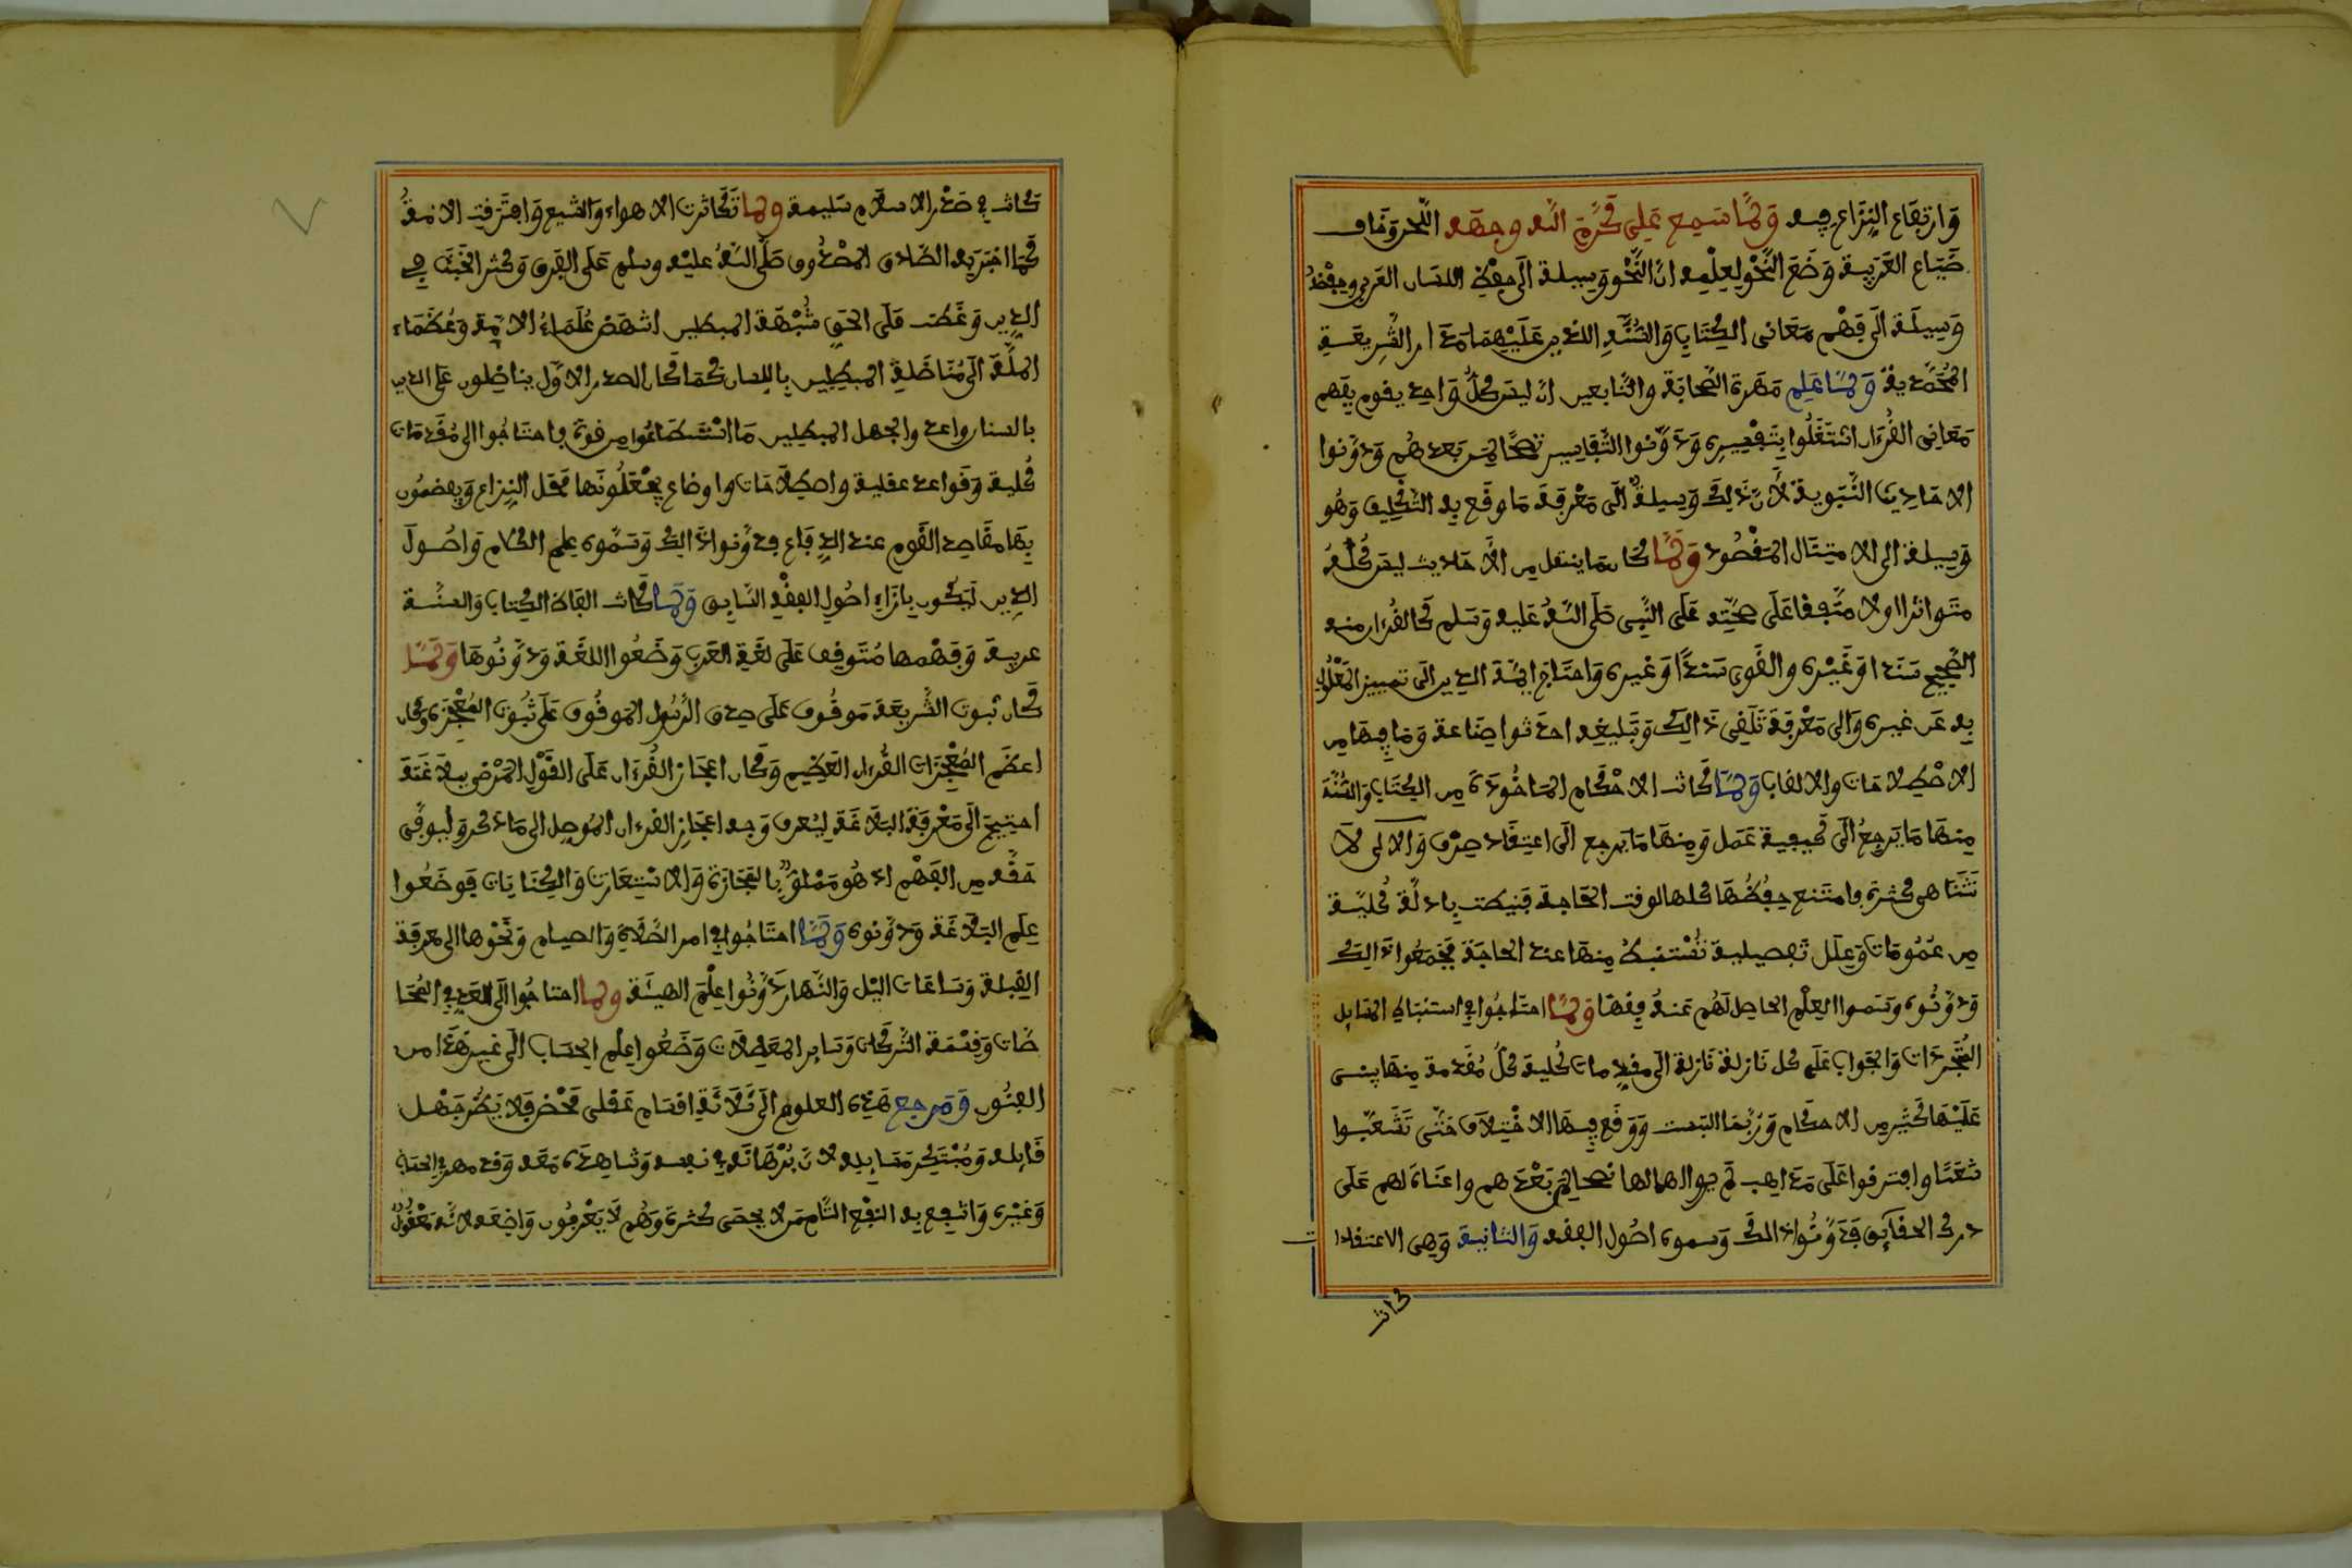 وَارتِفَاع النِّزَاع فِيه وَلمَّا سَمِع عَلِى كَرَّمَ اللَّه وجهَه اللَّحن وَخاف
ضَيَاع العَرَبِيَة وَضَعَ النَّحْو لِعِلْمِه انَّ النَّحْو وَسِيلة الَى حِفْظِ اللسَان العَربى وحِفْظُهُ
وَسِيلَة الَى فَهْم مَعَانى الكِتَابِ وَالسُّنَّةِ اللذين عَلَيْهِمَا مَدَار الشَّرِيعَةِ
المُحَمَّديةَ وَلمَّا عَلِم مَهَرة الصَّحابَة والتَّابعين ان ليسَ كلُّ وَاحد يقوم بفهم
مَعَانِى القُرءان اشتَغَلُوا بِتَفسِيرِه وَدَوَّنوا التَّفَاسِير نصحًا لمن بَعدهُم وَدوَّنوا
الاحَادِيث النَّبَوِية لأنَّ ذَلِكَ وَسِيلةٌ الَى مَعْرفةَ مَا وقَع بِه التكلِيف وَهُو
وَسِيلة الى الامتِثَال المَقصُود وَلمَّا كَان مَا ينتقل مِن الأحَاديث ليسَ كُلُّهُ
متَواتِرًا ولا متَّفِقا عَلَى صِحَّتِه عَلَى النَّبِى صَلَى اللَّهُ عَليه وَسَلم كالقُرءان منه
الصَّحِيح سَنَدا اوَ غَيْره والقَوى سَنَدًا اوَ غيره وَاحتَاج ايمَّة الدين الَى تمييز المَعْلُول
بِه عَن غيره وَالى مَعْرفَة تَلَقِى ذَالِكَ وَتَبليغِه احدَثوا صِنَاعة وَمَا فِيهَا مِن
الاصْطِلاحَات والالقاب وَلمَّا كَانت الاحْكَام المَاخُوذَة مِن الكِتَاب وَالسُّنَّة
مِنهَا مَا يَرجِعُ الَى كَيفِية عَمَل وَمِنهَا مَا يَرجع الَى اعتِقَاد صِرْف وَالاولى لَا
تَتَنَاهى كثرة وامتَنع حِفظُهَا كلها لوقت الحَاجة فنيطت بِادلَّة كُليَّة
مِن عُمُومَات وَعِلَل تَفصِيلية تُسْتنبَطُ مِنهَا عند الحَاجَة فجَمَعُوا ذَالِك
وَدوَّنُوه وسَموا العِلْم الحاصِل لَهُم عَنهُ فِقهًا وَلمَّا احتَاجُوا فى استنباط المسَايل
المُتَجَدِدَات وَالجَواب عَلَى كل نَازلة نَازلة الَى مقدِمات كُلية كلُّ مُقَدمة مِنهَا ينبنى
عَلَيْهَا كَثيْر مِن الاحكام وَرُبمَا التبست وَوَقَع فِيهَا الاخْتِلاَف حَتَّى تَشَعَّبُوا
شعَبًا وافترقوا عَلَى مَذاهِب لم يروا اهمالها نصحا لمن بَعْدَهم واعَانَة لهم عَلَى
درك الحقَايِق فَدَوَّنُوا ذالك وَسموه اصُول الفقه وَالثانية وَهِى الاعتقادات
كانت
كَانت فى صَدْر الاسلام سَلِيمة ولما تَكَاثَرت الاهواء وَالشيع وَافتَرقت الامةُ
كمَا اخبَر بِه الصَّادق المصْدُوق صَلَّى اللَّهُ عليْه وسلم عَلَى الفِرق وَكثر الخَبَث فى
الدِين وَغَطت عَلَى الحَق شُبْهَة المبطلين انتهَض عُلَمَاءُ الايمة وَعُظمَاء
المِلَّة الَى مُنَاضَلة المبطِلِين بِاللِسان كمَا كان الصدر الاوَّل يناضِلون عَلى الدين
بالسنان واعدوا لجهل المبطِلِين مَا اسْتطَاعُوا مِن قوة واحتَاجُوا الى مُقَدمَات
كُلية وَقَواعد عقلية واصطِلاحَات واوضاع يجعَلُونَهَا محَل النِزاع وَيفهمُون
بِهَا مقَاصد القَوم عند الدِفَاع فدوَّنوا ذَالِك وَسَمّوه علم الكلام وَاصُول
الدِين لِيَكون بازَاء اصُول الفِقْه السَّابِق وَلمَّا كَانت القَاظ الكِتاب وَالسُّنَة
عربِية وَفهْمهَا مُتَوقِف عَلَى لغَة العَرب وَضَعُوا اللغَة وَدوَّنُوهَا وَلمَّا
كَان ثبوت الشَّريعَة مَوقُوف عَلَى صدق الرَّسُول الموقُوف عَلَى ثُبُوت المُعْجِزة وكَان
اعظَم المُعْجِزَات القُرءان العَظِيم وَكان اعجَاز القُرءان عَلَى القَوْل المَرْضى ببلاغَتَه
احتِيجَ الَى مَعْرفَة البَلاغَة لِيُعرف وَجه اعجَازِ القرءان المُوصِل الى مَا ذكر وَليوفَّى
حَقَّه مِن الفَهْم اذ هُو مَمْلوٌّ بالمَجَازَة وَالاسْتِعَارت وَالكِنَايَات فَوضَعُوا
عِلَم البَلاغَة وَدوَّنوه وَلمَّا احتَاجُوا فى امر الصَّلَاة وَالصيام وَنَحْوها الى معرفَة
القِبلة وَسَاعَات اليْل وَالنَّهار دَوَّنُوا عِلْمَ الهيئَة ولما احتاجُوا الَى العَدد فى المُحَا
صَّات وَقِسْمَة التَّركَات وَسَاير المعَامَلات وَضَعُوا عِلْم الحِسَاب الَى غيرهَذَا من
الفنُون وَمَرجع هَذِه العلوم الَى ثَلَاثَة اقسَام عَقلى مَحْض فلا يَضُر جَهْل
قَايله وَمُبْتَكِر مَسَايله لانَّ بُرْهَانَه فى نفسه وَشاهدَه مَعَه وَقد مهر فى الحسَاب
وَغَيْره وَانتفع بِه النفْع التَّام مَن لا يحصَى كثرة وَهُم لَا يَعْرفُون وَاضِعَه لانَّه مَعْقُولٌ